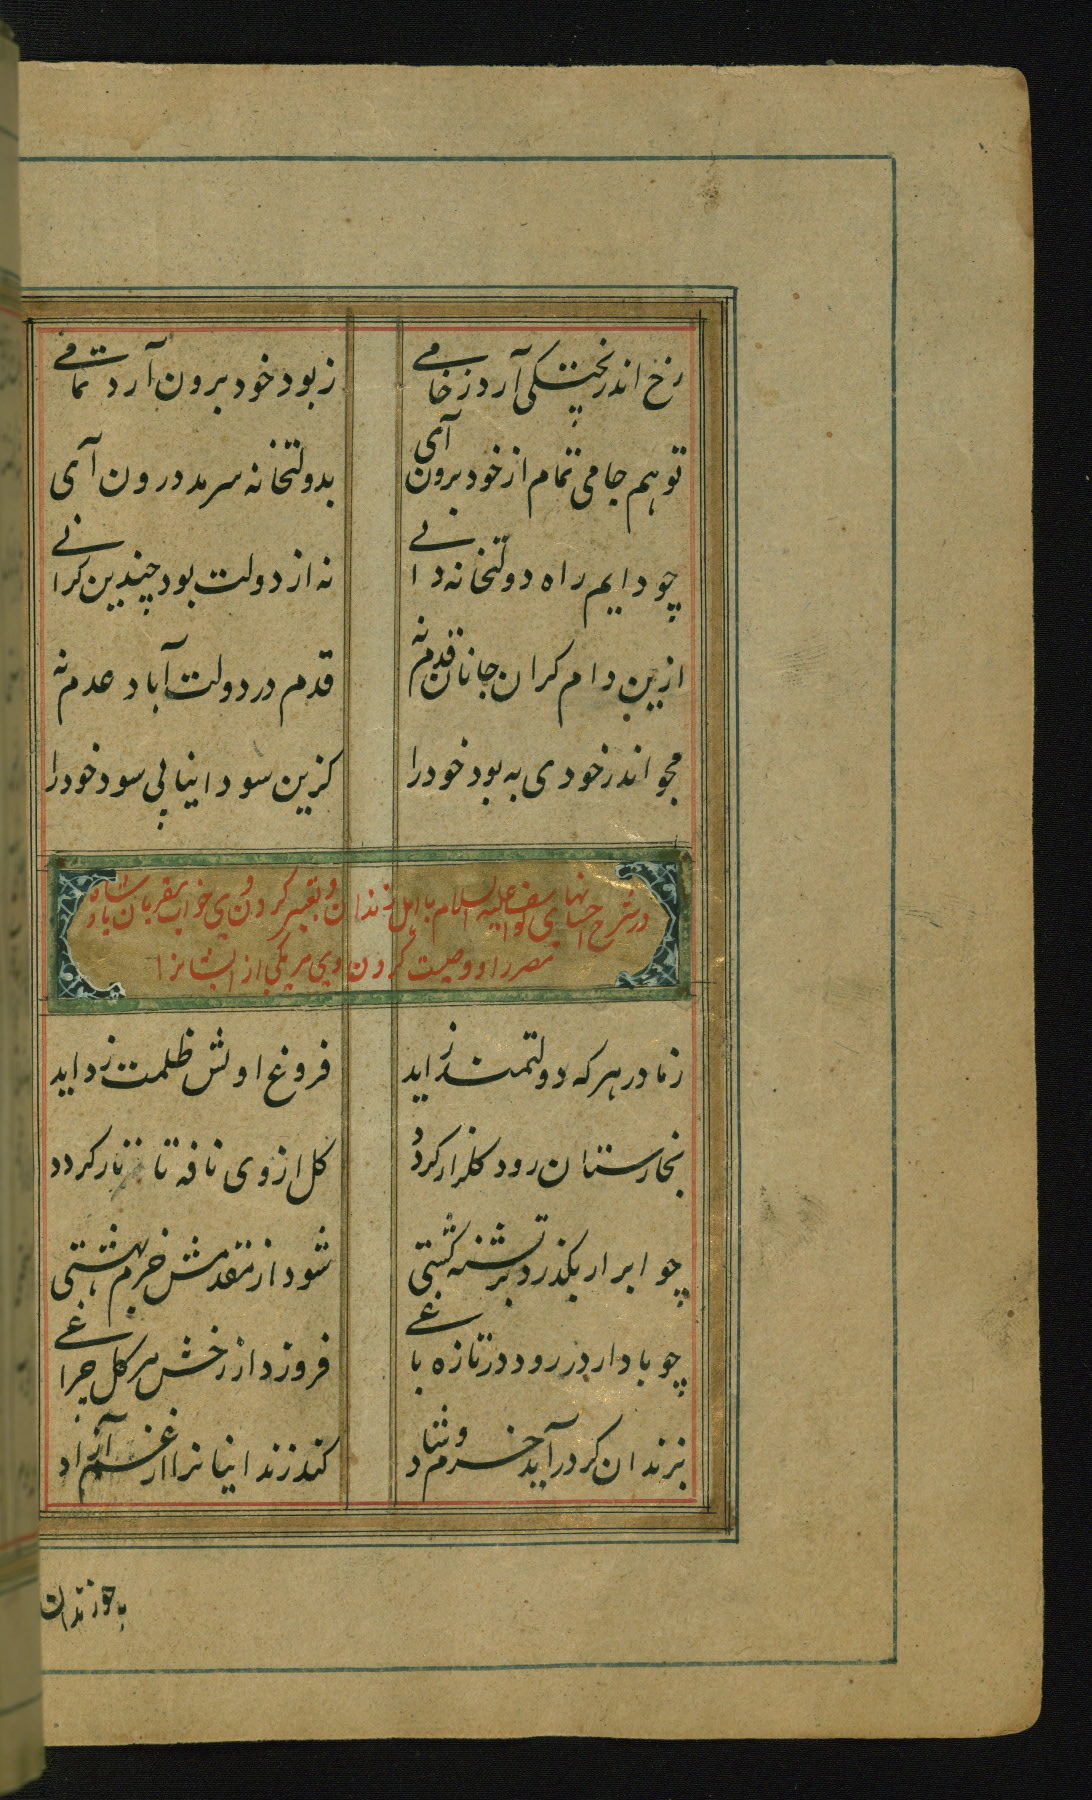 رخ اندر پختکی آرد ز خامی ز بود خود برون آرد تمامی
تو هم جامی تمام از خود برون آی بدولتخانه سرمد درون آی
چو دایم راه دولتخانه دانی نه از دولت بود چندین کرانی
ازین دام کران جانان قدم نه قدم در دولت آباد عدم نه
مجو اندر خودی به بود خود را کزین سودا نیابی سود خود را
در شرح احسانهای یوسف علیه السلام با اهل زندان و تعبیر کردن وی خواب مقربان پادشاه
مصر را و وصیت کردن وی مر یکی از ایشانرا
ز مادر هر که دولتمند زاید فروغ اوش ظلمت زداید
بخارستان رود کلزار کردد کل از وی نافه تاتار کردد
چو ابر ار بکذرد بر تشنه کشتی شود از مقدمش خرم بهشتی
چو باد ار در رود در تازه باغی فروزد از رخش هر کل چراغی
بزندان کر درآید خرم و شاد کند زندانیانرا از غم آزاد
چو زندان